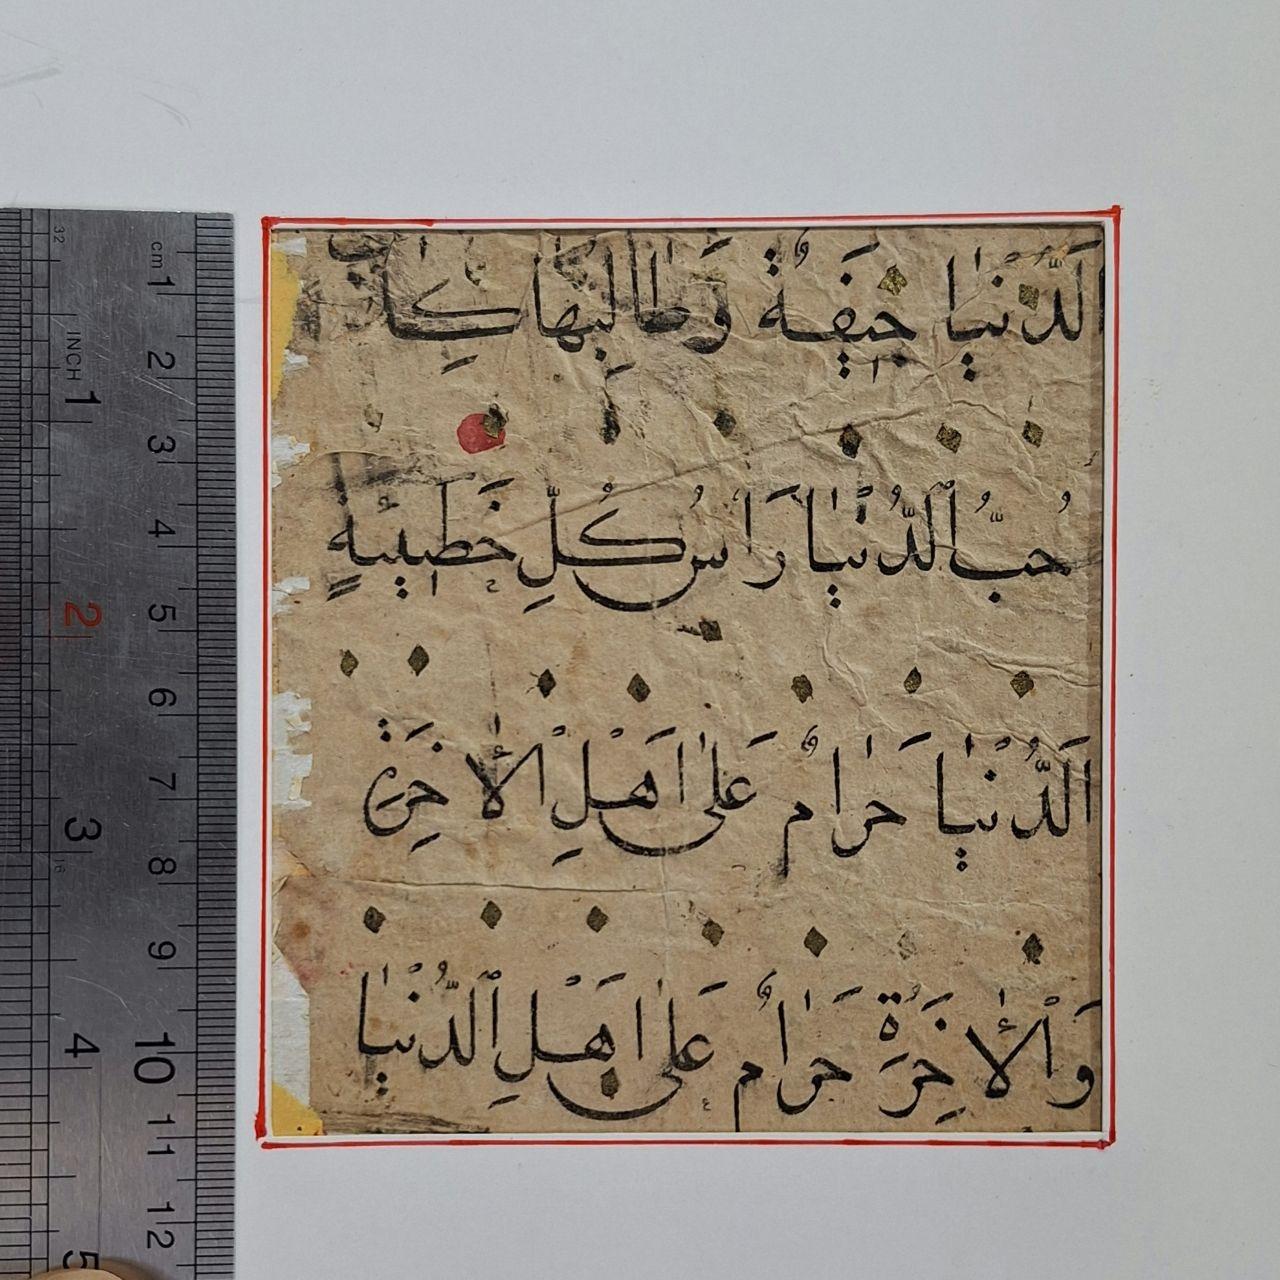 اَلدُّنْيَا جِيفَةٌ وَطَالِبُهَا كِلَابٌ
حُبُّ الدُّنْيَا رَأْسُ كُلِّ خَطِيئَةٍ
اَلدُّنْيَا حَرَامٌ عَلَى اَهْلِ الْاٰخِرَةِ
وَالْاٰخِرَةُ حَرَامٌ عَلَى اَهْلِ الدُّنْيَا
32
cm 1 2 3 4 5 6 7 8 9 10 11 12
INCH 1 2 3 4 5
16